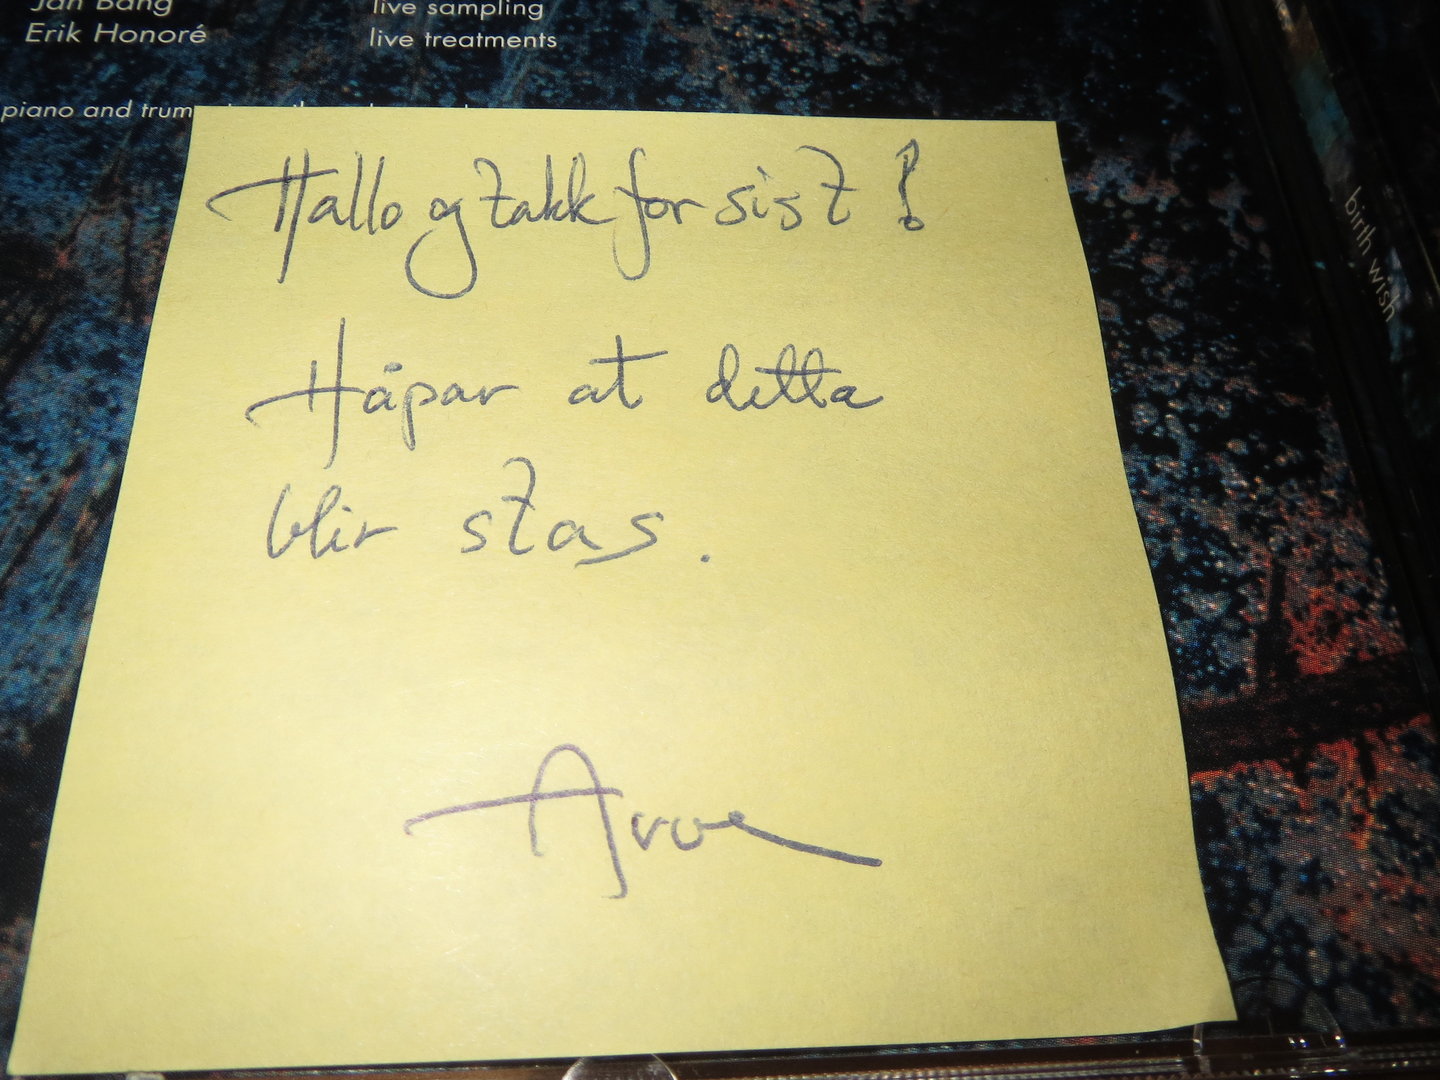 Jan Bang live sampling
Erik Honoré live treatments
piano and
Hallo og takk for sist!
Håpar at detta
blir stas.
Arve
birth wish